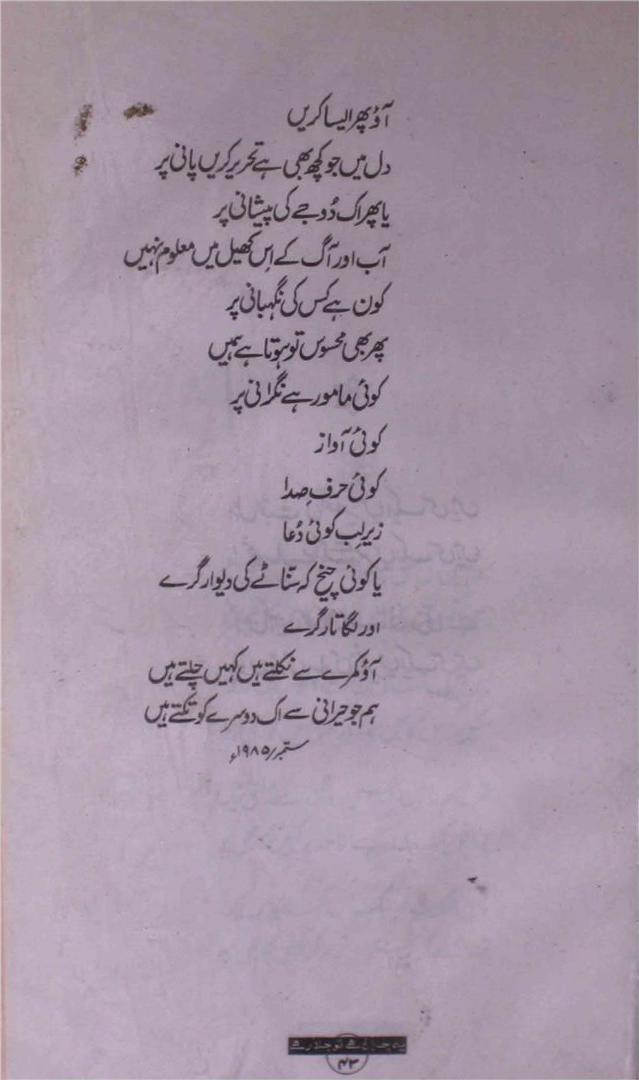 آؤ پھر ایسا کریں
دل میں جو کچھ بھی ہے تحریر کریں پانی پر
یا پھر اک دُوجے کی پیشانی پر
آب اور آگ کے اِس کھیل میں معلوم نہیں
کون ہے کس کی نگہبانی پر
پھر بھی محسوس تو ہوتا ہے ہمیں
کوئی مامور ہے نگرانی پر
کوئی آواز
کوئی حرفِ صدا
زیرِ لب کوئی دُعا
یا کوئی چیخ کہ سنّاٹے کی دیوار گرے
اور لگاتار گرے
آؤ کمرے سے نکلتے ہیں کہیں چلتے ہیں
ہم جو حیرانی سے اک دوسرے کو تکتے ہیں
ستمبر ۱۹۸۵ء
یہ چراغ ہے تو جلا رہے
۴۳